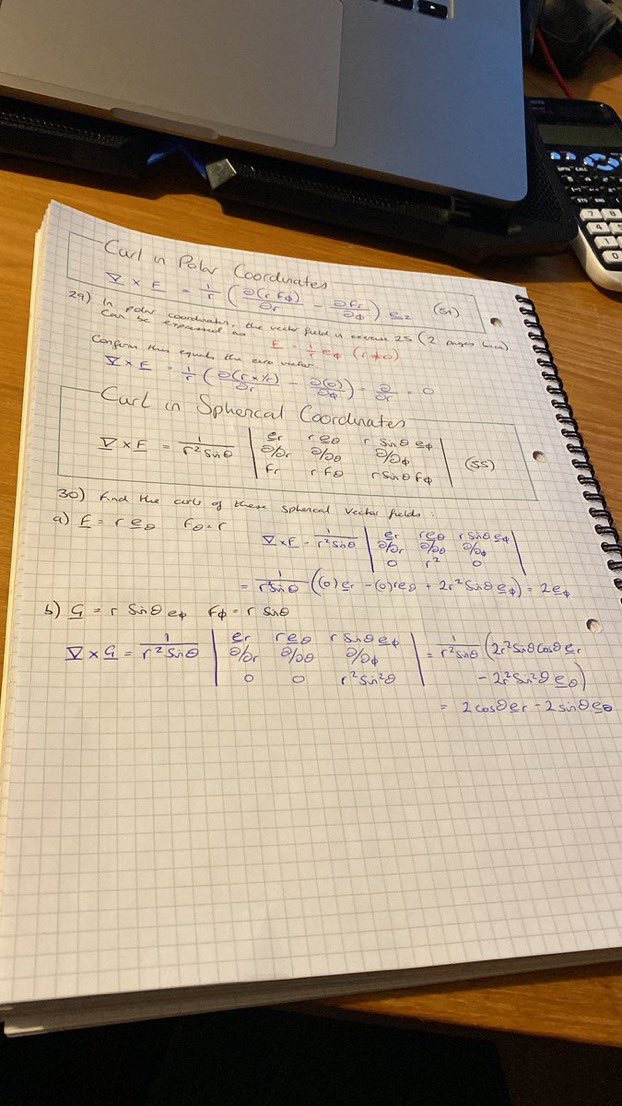 Curl in Polar Coordinates
∇ × F = 1/r ( ∂(r Fφ)/∂r - ∂Fr/∂φ ) e_z (54)
29) In polar coordinates, the vector field in exercise 25 (2 pages back)
can be expressed as
F = 1/r eφ (r≠0)
Confirm this equals the zero vector.
∇ × F = 1/r ( ∂(r × 1/r)/∂r - ∂(0)/∂φ ) = ∂/∂r = 0
Curl in Spherical Coordinates
∇ × F = 1/(r² sinθ) | er reθ r sinθ eφ |
| ∂/∂r ∂/∂θ ∂/∂φ | (55)
| Fr r Fθ r sinθ Fφ |
30) Find the curls of these spherical vector fields :
a) F = r eθ Fθ = r
∇ × F = 1/(r² sinθ) | er reθ r sinθ eφ |
| ∂/∂r ∂/∂θ ∂/∂φ |
| 0 r² 0 |
= 1/(r² sinθ) ((0) er - (0) reθ + 2r² sinθ eφ) = 2eφ
b) G = r sinθ eφ Fφ = r sinθ
∇ × G = 1/(r² sinθ) | er reθ r sinθ eφ |
| ∂/∂r ∂/∂θ ∂/∂φ |
| 0 0 r² sin²θ |
= 1/(r² sinθ) (2r² sinθ cosθ er
- 2r² sin²θ eθ)
= 2cosθ er - 2 sinθ eθ